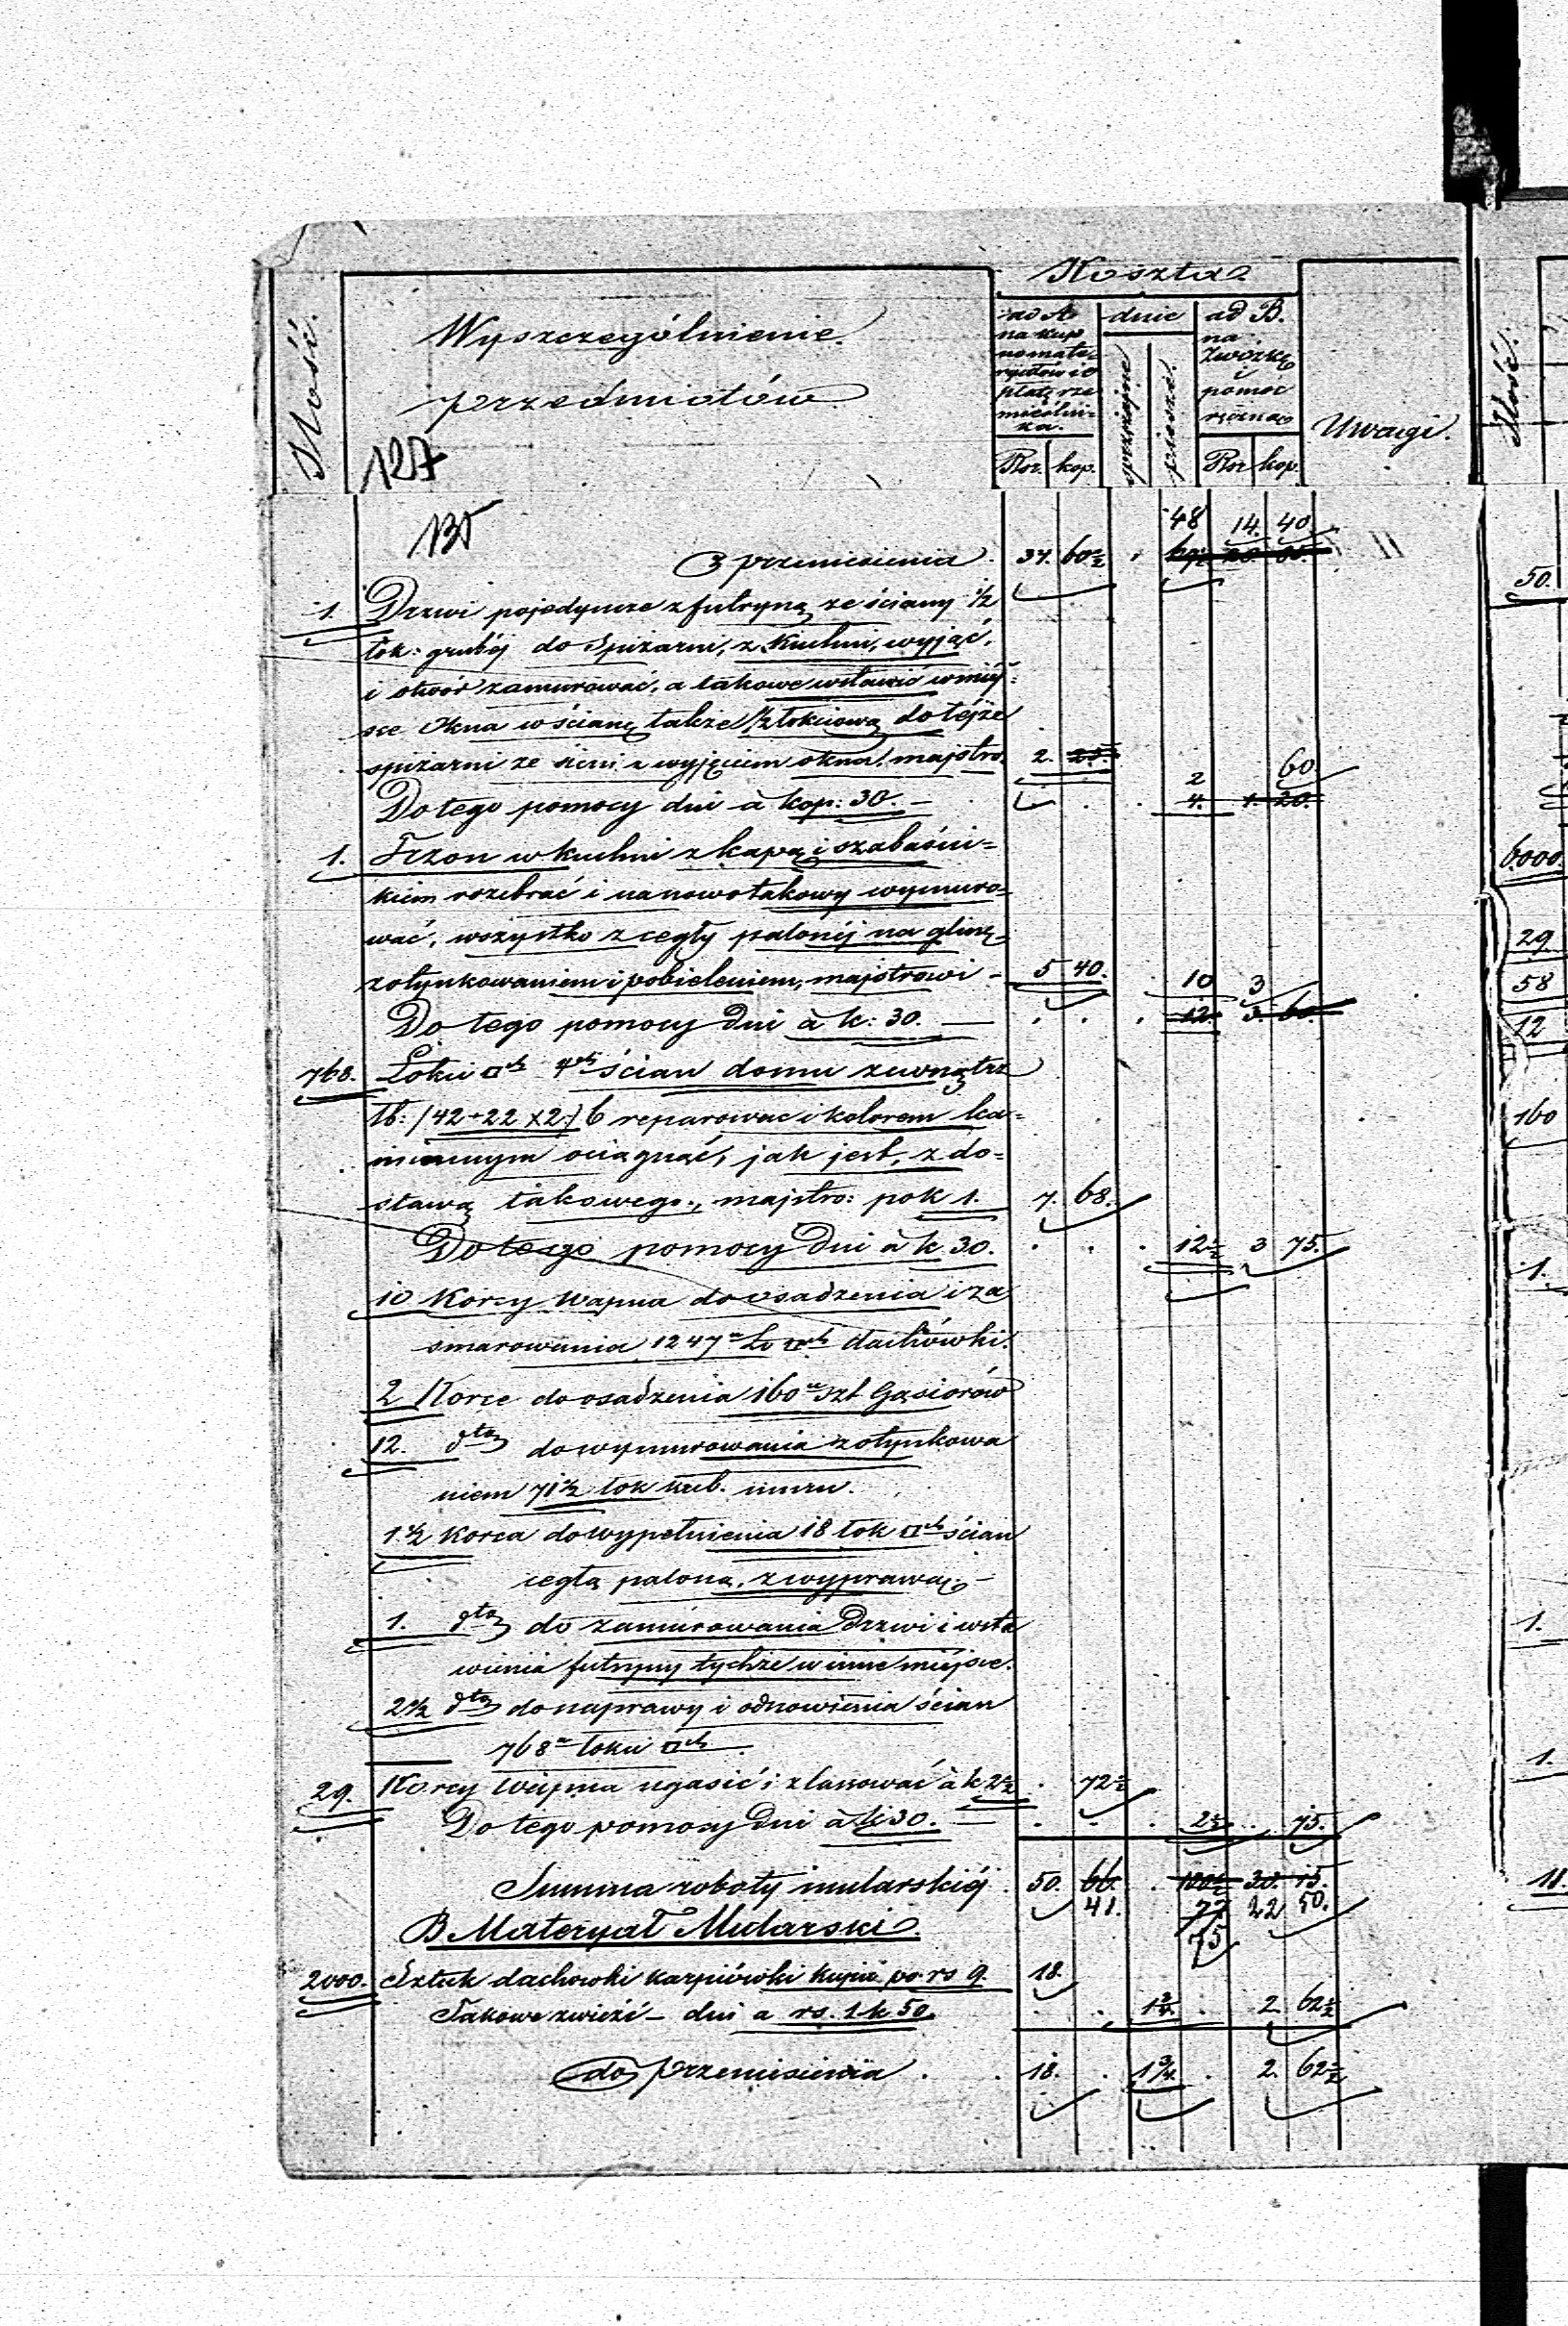 Koszta.
Ilość.
Wyszczególnienie
przedmiotów
ad A
na kup
no mate-
ryałów i o
płatę rze
mieślni-
ka.
dnie
sprzężajne
piesze.
ad B.
na
zwózkę
i
pomoc
ręczną
Uwagi.
Ilość.
Rsr. kop. Rsr kop.
127
135
48 14. 40.
Z przeniesienia. 37. 60½
50.
1. Drzwi pojedyncze z futryną ze ściany ½
łok: grubéj do Spiżarni, z Kuchni, wyjąć,
i otwór zamurować, a takowe wstawić w miéj-
sce Okna w ścianę także ½ łokciową do téjże
spiżarni ze sieni z wyjęciem okna, majstro. 2. 25.
2 60
Do tego pomocy dni à kop: 30. — 4. 1. 20.
1. Trzon w kuchni z kapą i szabaśni-
6000.
kiem rozebrać i na nowo takowy wymuro-
wać, wszystko z cegły palonéj na glinę
29
z otynkowaniem i pobieleniem, majstrowi — 5 40. 10 3
58
Do tego pomocy dni à k: 30. — 12. 3. 60.
12
768. Łokci □ch 4ch ścian domu zewnątrz
tb: (42+22 x 2) 6 reparować i kolorem ka-
160
miennym ociągnąć, jak jest, z do-
stawą takowego, majstro: po k 1. 7. 68.
Do tego pomocy dni à k 30. 12½ 3 75.
1.
10 Korcy Wapna do osadzenia i za
smarowania 1247 Ło □ch dachówki.
2 Korce do osadzenia 160 szt Gąsiorów
12. dto do wymurowania z otynkowa
niem 71½ łok kub. muru.
1½ Korca do wypełnienia 18 łok □ch ścian
cegłą paloną, z wyprawą. —
1. dto do zamurowania Drzwi i wsta
1.
wienia futryny tychże w inne miéjsce.
2½ dto do naprawy i odnowienia ścian
768 łokci □ch
1.
29. Korcy Wapna ugasić i zlasować à k 2½ 72½
Do tego pomocy dni à k 30. — 2½ 75.
Summa roboty mularskiéj 50. 66. 100½ 30. 15.
11.
41. 72 22 50.
B. Materyał Mularski. 75
2000. Sztuk dachowki karpiówki kupić po rs 9. 18.
Takowe zwieźć — dni a rs. 1 k 50. 1¾ 2. 62½
do przeniesienia. 18. 1¾ 2. 62½